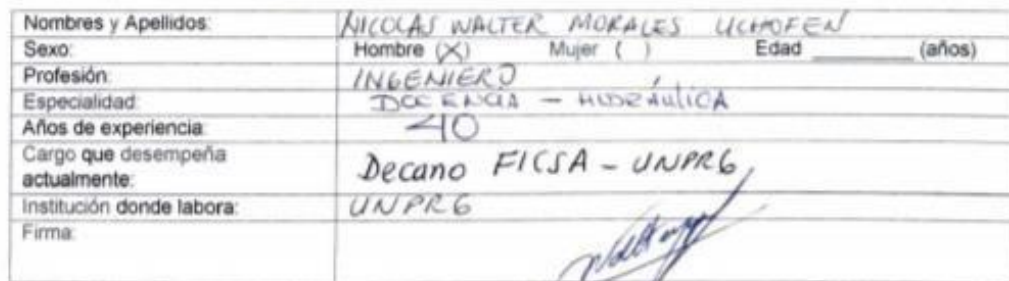 Nombres y Apellidos: NICOLAS WALTER MORALES UCHOFEN
Sexo: Hombre (X) Mujer ( ) Edad ______ (años)
Profesión: INGENIERO
Especialidad: DOCENCIA - HIDRÁULICA
Años de experiencia: 40
Cargo que desempeña
actualmente: Decano FICSA - UNPRG
Institución donde labora: UNPRG
Firma: